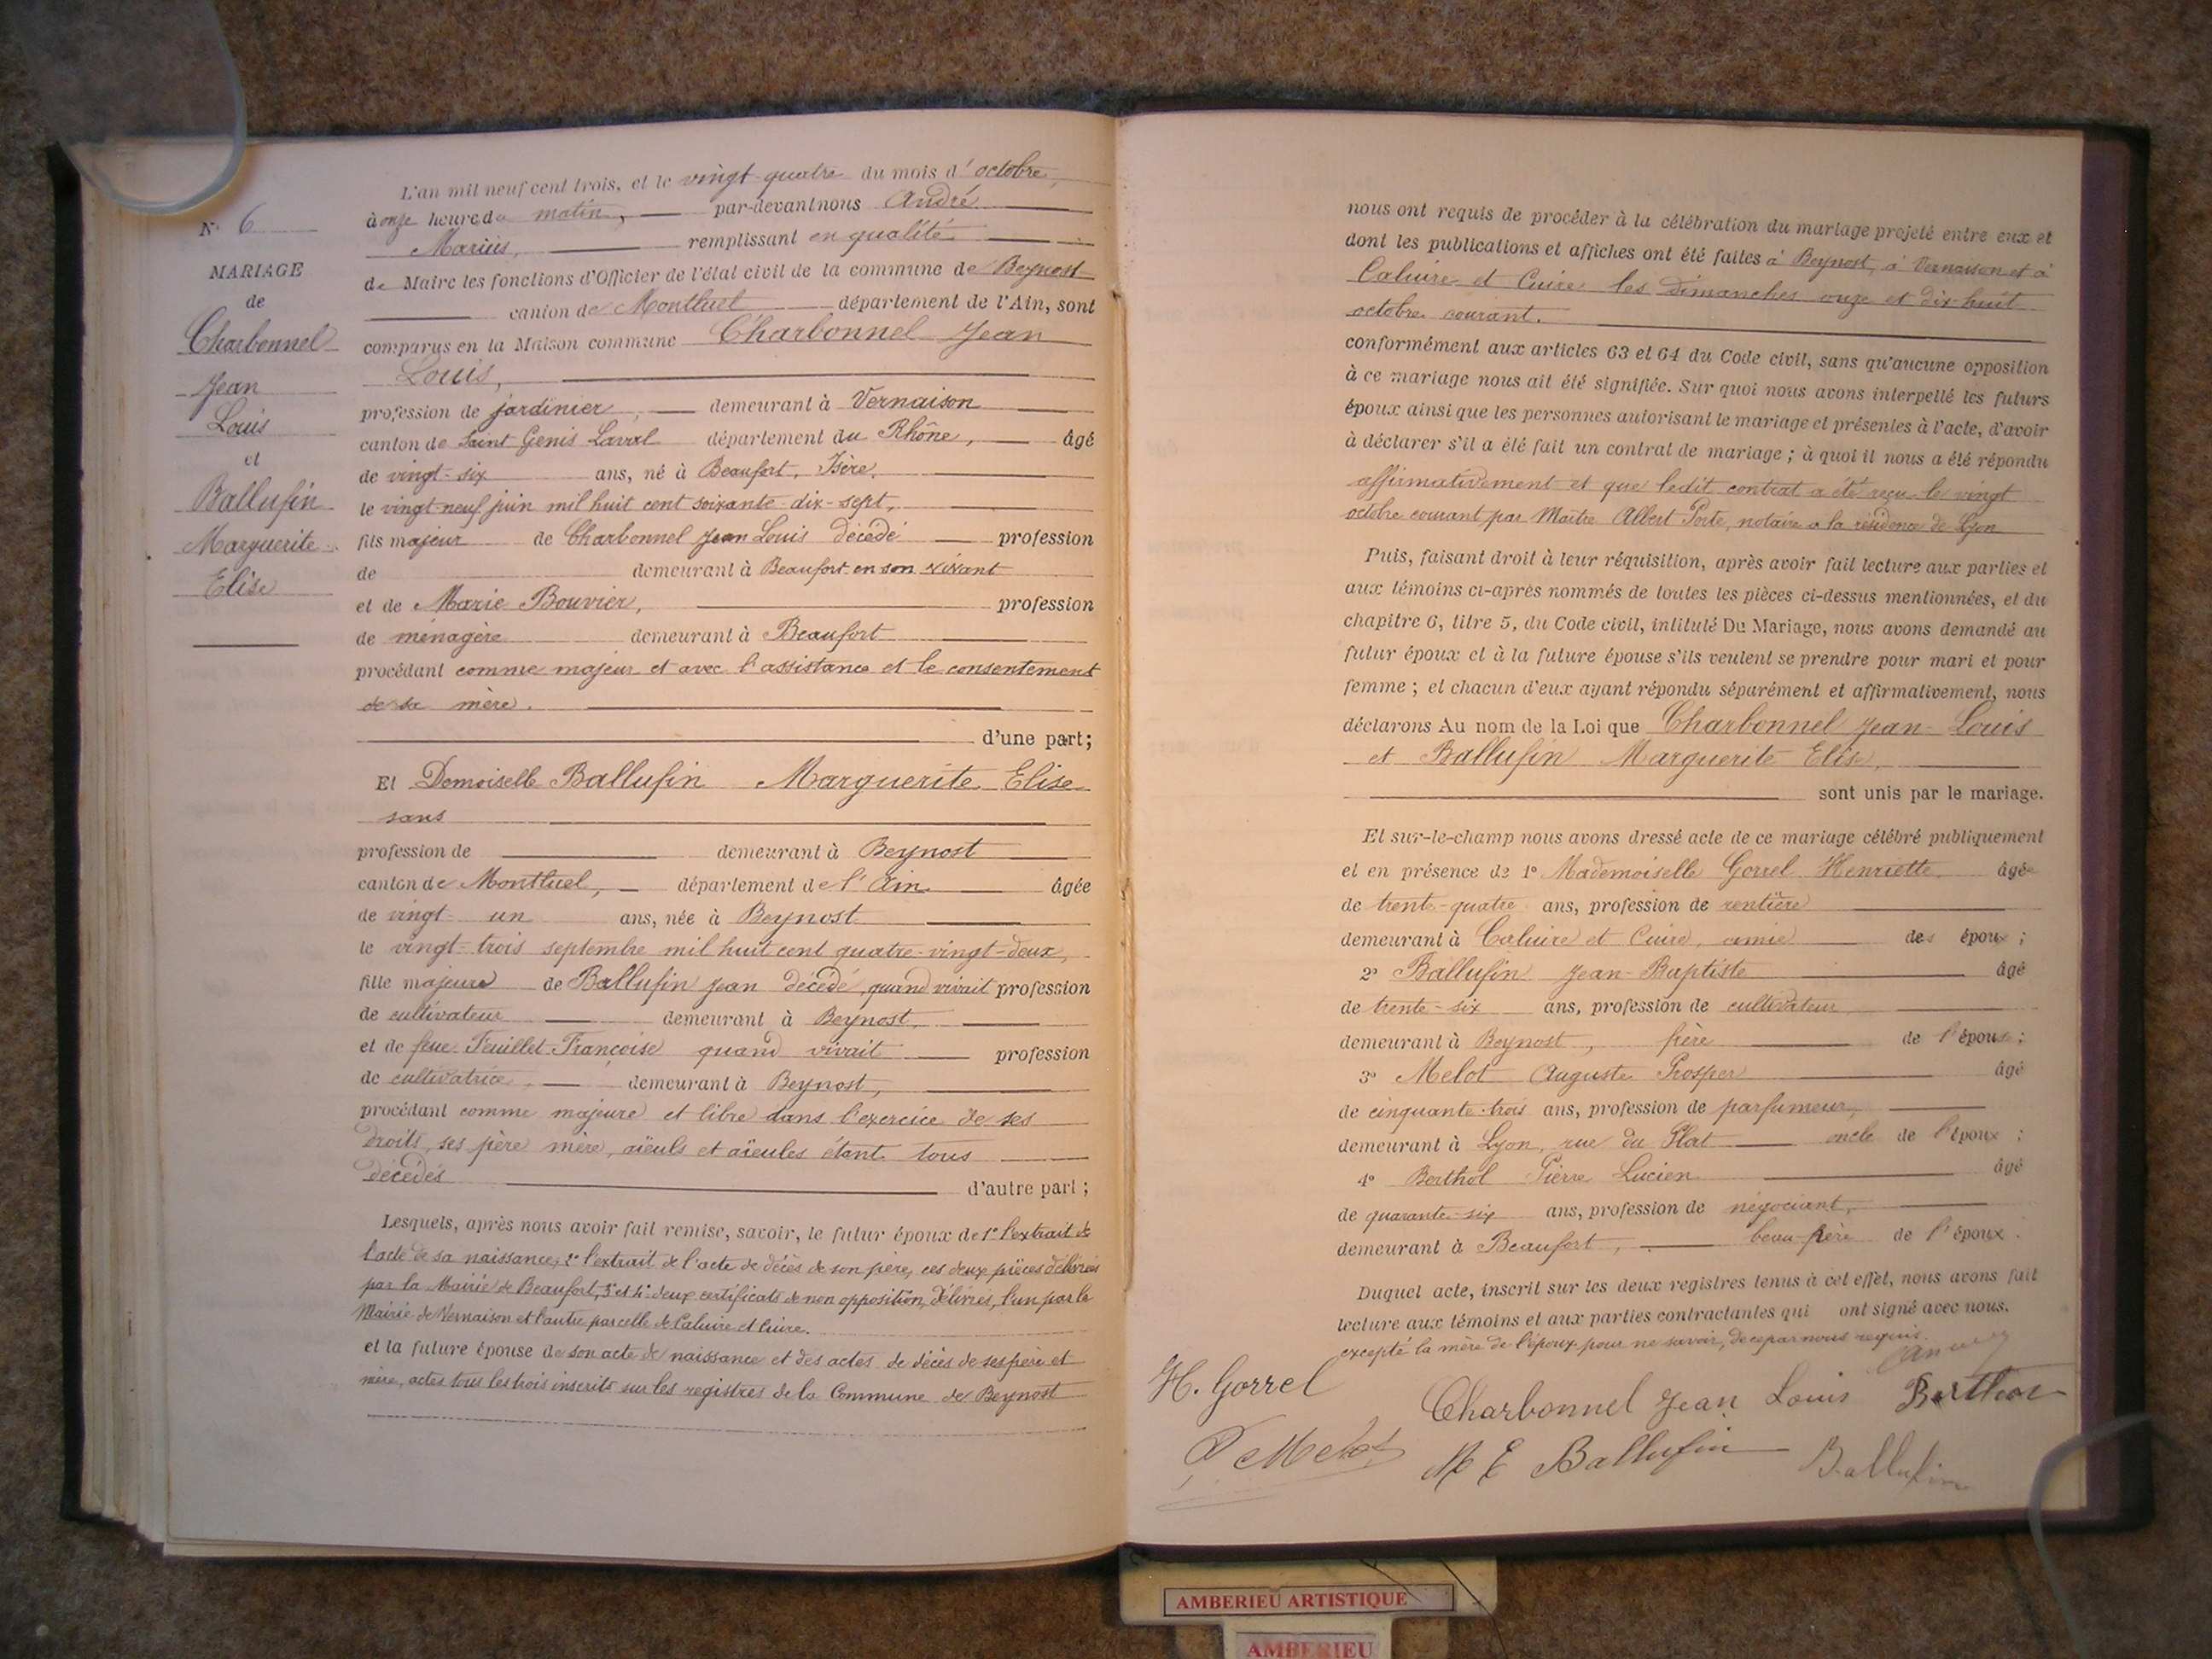 N° 6
MARIAGE
de
Charbonnel
Jean
Louis
et
Ballufin
Marguerite
Elise
L'an mil neuf cent trois, et le vingt-quatre du mois d'octobre,
à onze heure du matin, par-devant nous André
Marius, remplissant en qualité
de Maire les fonctions d'Officier de l'état civil de la commune de Beynost
canton de Montluel département de l'Ain, sont
comparus en la Maison commune Charbonnel Jean
Louis,
profession de jardinier, demeurant à Vernaison
canton de Saint Genis Laval département du Rhône, âgé
de vingt-six ans, né à Beaufort, Isère,
le vingt-neuf juin mil huit cent soixante-dix-sept,
fils majeur de Charbonnel Jean Louis décédé profession
de demeurant à Beaufort en son vivant
et de Marie Bouvier, profession
de ménagère demeurant à Beaufort
procédant comme majeur et avec l'assistance et le consentement
de sa mère.
d'une part;
Et Demoiselle Ballufin Marguerite Elise
sans
profession de demeurant à Beynost
canton de Montluel, département de l'Ain âgée
de vingt-un ans, née à Beynost
le vingt-trois septembre mil huit cent quatre-vingt-deux,
fille majeure de Ballufin Jean décédé, quand vivait profession
de cultivateur demeurant à Beynost,
et de feue Feuillet Françoise quand vivait profession
de cultivatrice, demeurant à Beynost,
procédant comme majeure et libre dans l'exercice de ses
droits, ses père mère, aïeuls et aïeules étant tous
décédés d'autre part;
Lesquels, après nous avoir fait remise, savoir, le futur époux de 1° l'extrait de
l'acte de sa naissance, 2° l'extrait de l'acte de décès de son père, ces deux pièces délivrées
par la Mairie de Beaufort, 3° et 4° deux certificats de non opposition, délivrés, l'un par la
Mairie de Vernaison et l'autre par celle de Caluire et Cuire.
et la future épouse de son acte de naissance et des actes de décès de ses père et
mère, actes tous les trois inscrits sur les registres de la Commune de Beynost
nous ont requis de procéder à la célébration du mariage projeté entre eux et
dont les publications et affiches ont été faites à Beynost, à Vernaison et à
Caluire et Cuire les dimanches onze et dix-huit
octobre courant.
conformément aux articles 63 et 64 du Code civil, sans qu'aucune opposition
à ce mariage nous ait été signifiée. Sur quoi nous avons interpellé les futurs
époux ainsi que les personnes autorisant le mariage et présentes à l'acte, d'avoir
à déclarer s'il a été fait un contrat de mariage ; à quoi il nous a été répondu
affirmativement et que ledit contrat a été reçu le vingt
octobre courant par Maître Albert Porte, notaire à la résidence de Lyon
Puis, faisant droit à leur réquisition, après avoir fait lecture aux parties et
aux témoins ci-après nommés de toutes les pièces ci-dessus mentionnées, et du
chapitre 6, titre 5, du Code civil, intitulé Du Mariage, nous avons demandé au
futur époux et à la future épouse s'ils veulent se prendre pour mari et pour
femme ; et chacun d'eux ayant répondu séparément et affirmativement, nous
déclarons Au nom de la Loi que Charbonnel Jean-Louis
et Ballufin Marguerite Elise,
sont unis par le mariage.
Et sur-le-champ nous avons dressé acte de ce mariage célébré publiquement
et en présence de 1° Mademoiselle Gorrel Henriette âgée
de trente-quatre ans, profession de rentière
demeurant à Caluire et Cuire, amie des époux ;
2° Ballufin Jean-Baptiste âgé
de trente-six ans, profession de cultivateur
demeurant à Beynost, frère de l'épouse ;
3° Melot Auguste Prosper âgé
de cinquante-trois ans, profession de parfumeur,
demeurant à Lyon, rue du Plat oncle de l'époux ;
4° Berthol Pierre Lucien âgé
de quarante-six ans, profession de négociant,
demeurant à Beaufort, beau-frère de l'époux.
Duquel acte, inscrit sur les deux registres tenus à cet effet, nous avons fait
lecture aux témoins et aux parties contractantes qui ont signé avec nous.
excepté la mère de l'époux pour ne savoir, de ce par nous requis.
H. Gorrel
Charbonnel Jean Louis
Melot
M E Ballufin
Ballufin
AMBERIEU ARTISTIQUE
AMBERIEU